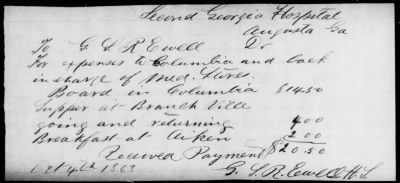 Second Georgia Hospital
Augusta Ga
To G. L. R Ewell Dr
For expenses to Columbia and back
in charge of Med. Stores.
Board in Columbia $14.50
Supper at Branch Ville
going and returning 4.00
Breakfast at Aiken 2.00
Received Payment $20.50
Oct 4th 1863 G. L. R. Ewell H.S.